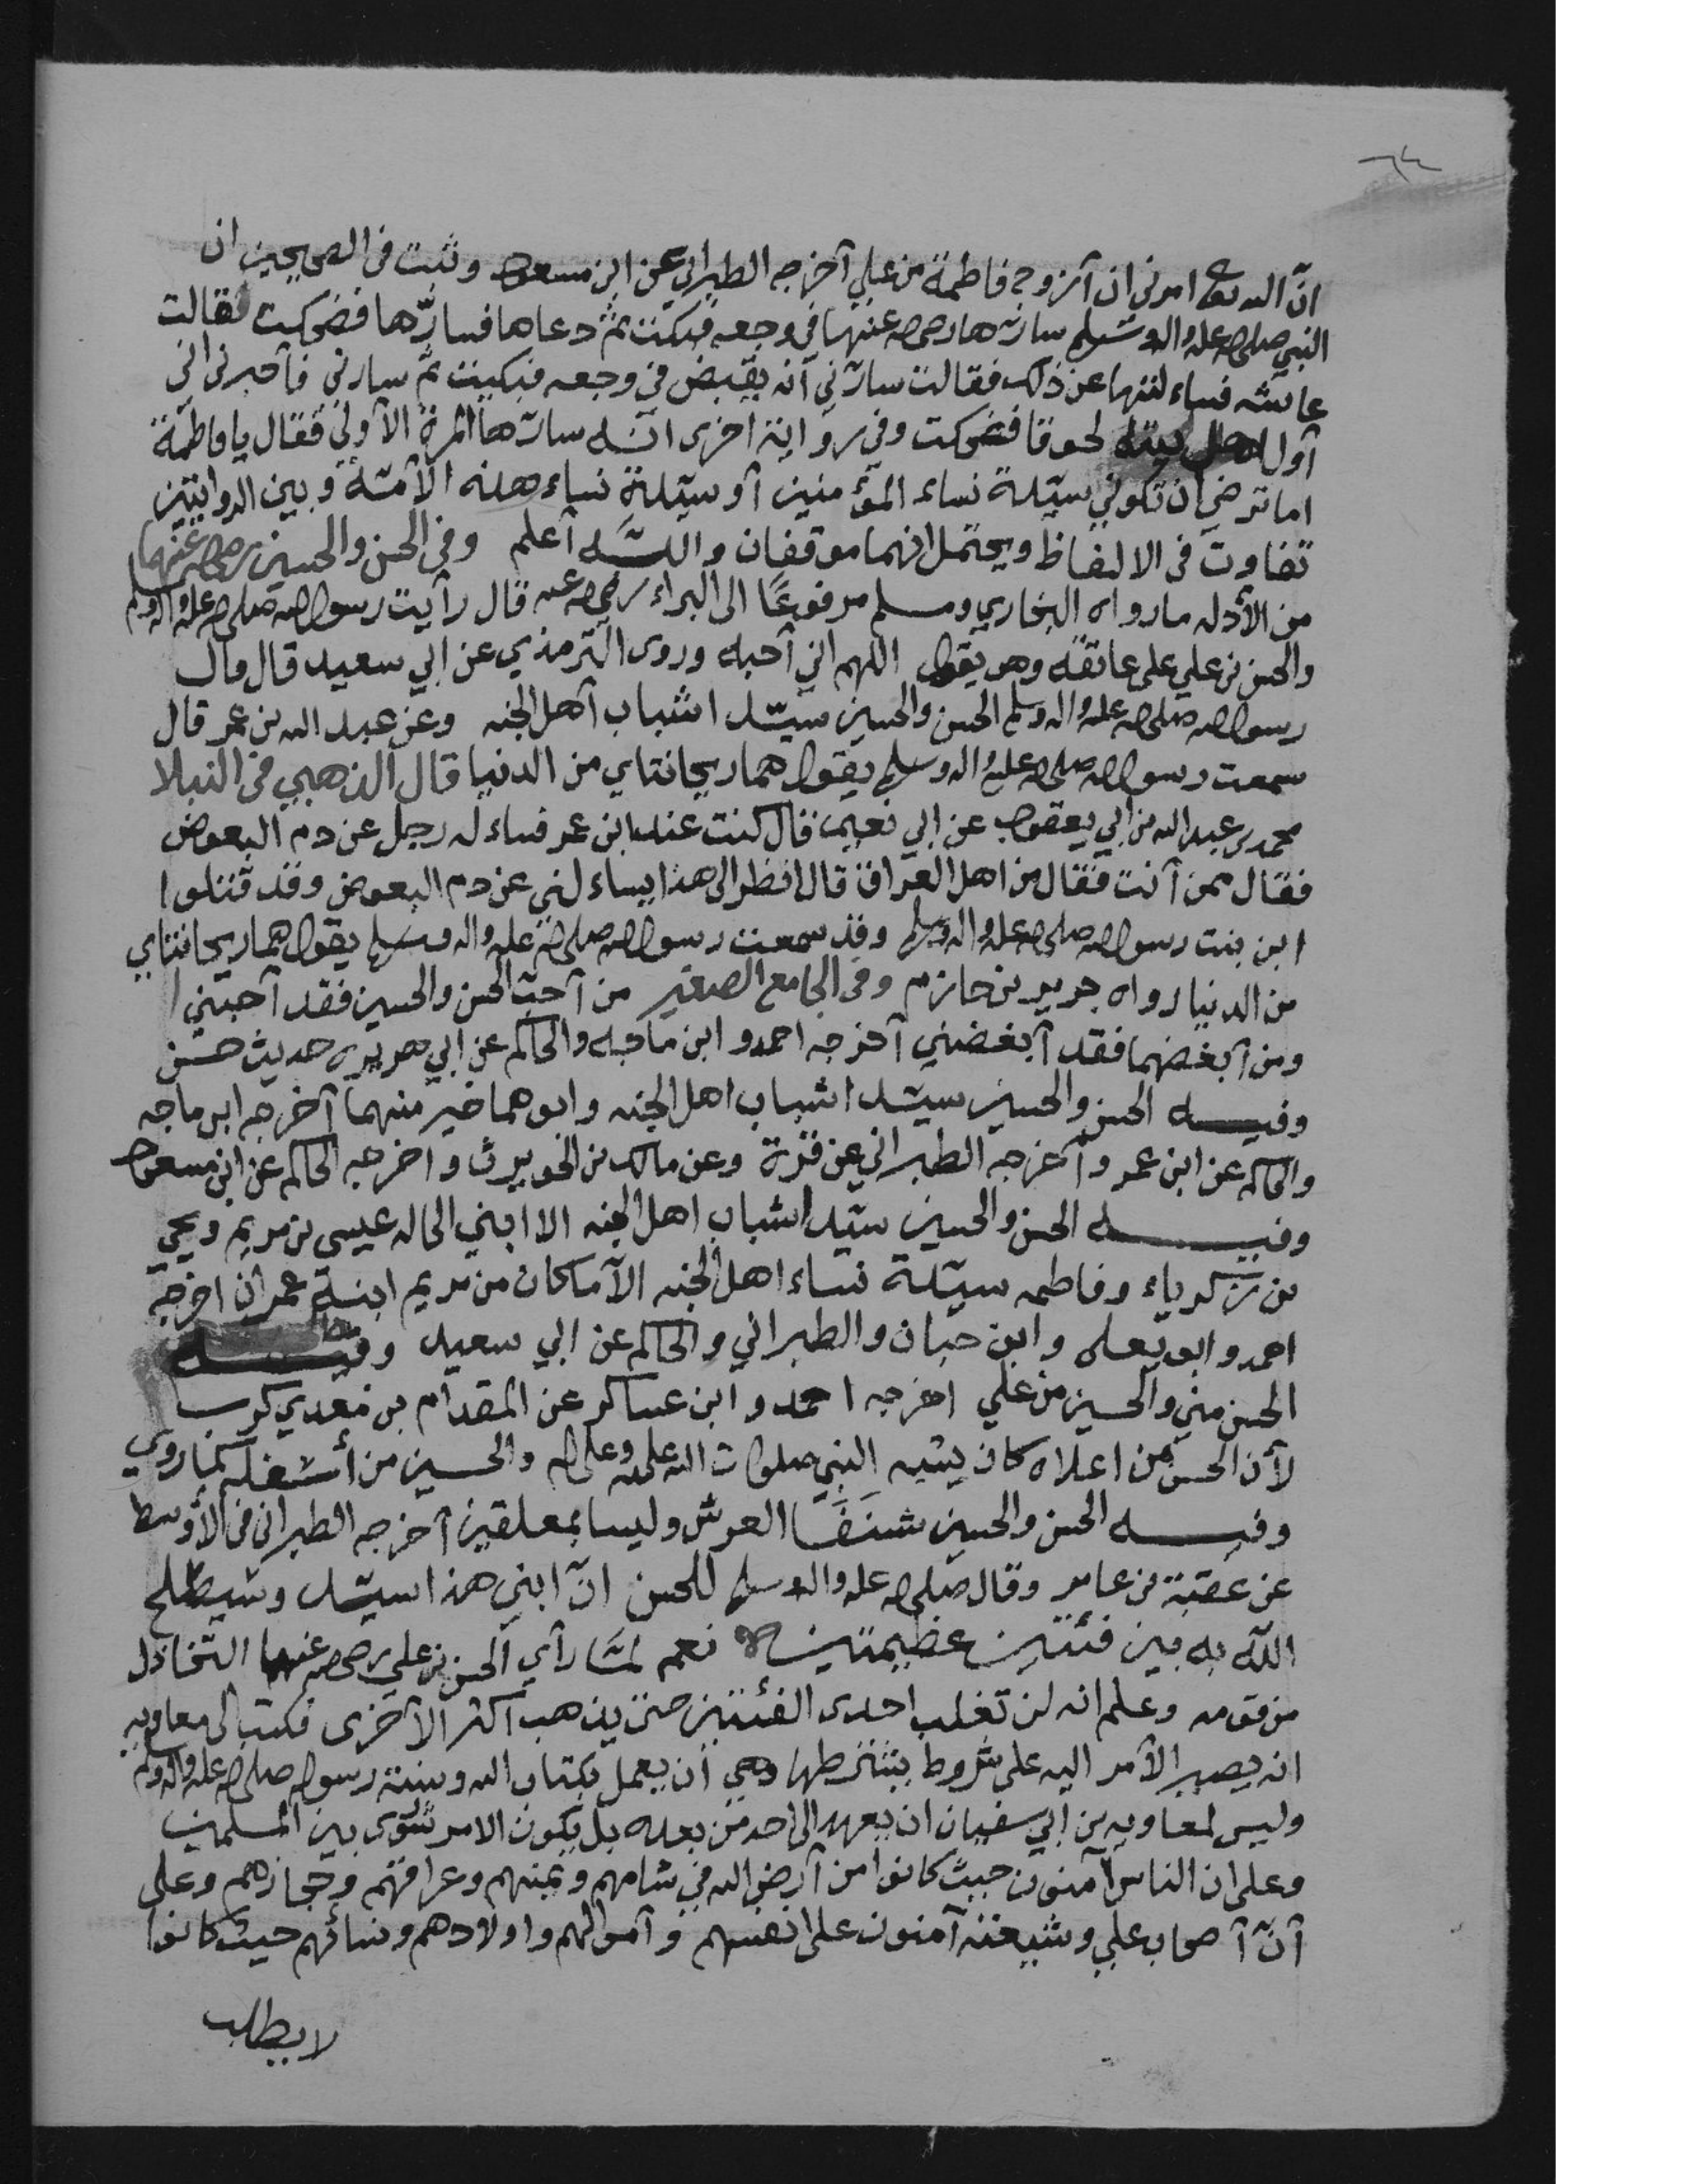 ٦٤
انّ الله تعالى امرني ان آزوج فاطمة من علي آخرجه الطبراني عن ابن مسعود وثبت في الصحيحين ان
النبي صلى الله عليه واله وسلم سارّها رضي الله عنها في وجعه فبكت ثمّ دعاها فسارّها فضحكت فقالت
عائشه فساءلتها عن ذلك فقالت سارّني آنه يقبض في وجعه فبكيت ثمّ سارني فآخبرني اني
آول اهل بيته لحوقا فضحكت وفي رواية اخرى انّه سارّها المرة الآولى فقال يا فاطمة
اما ترضي ان تكوني سيّدة نساء المؤمنين آو سيّدة نساء هذه الآمّة وبين الروايتين
تفاوت في الالفاظ ويحتمل انهما موقفان واللّه آعلم وفي الحسن والحسين رضي الله عنهما
من الأدله مارواه البخاري ومسلم مرفوعًا الى البراء رضي الله عنه قال رآيت رسول الله صلى الله عليه واله وسلم
والحسن بن علي على عاتقه وهو يقول اللهم اني آحبه وروى الترمذي عن ابي سعيد قال قال
رسول الله صلى الله عليه واله وسلم الحسن والحسين سيّدا شباب آهل الجنه وعن عبد الله بن عمر قال
سمعت رسول الله صلى الله عليه واله وسلم يقول هما ريحانتاي من الدنيا قال الذهبي في النبلا
محمد بن عبد الله بن ابي يعقوب عن ابي نعيم قال كنت عند ابن عمر فساءله رجل عن دم البعوض
فقال ممن آنت فقال من اهل العراق قال انظر الى هذا يساءلني عن دم البعوض وقد قتلوا
ابن بنت رسول الله صلى الله عليه واله وسلم وقد سمعت رسول الله صلى الله عليه واله وسلم يقول هما ريحانتاي
من الدنيا رواه جرير بن حازم وفي الجامع الصغير من آحبّ الحسن والحسين فقد آحبّني
ومن آبغضهما فقد آبغضني آخرجه احمد و ابن ماجه والحاكم عن ابي هريره حديث حسن
وفيه الحسن والحسين سيّدا شباب اهل الجنه وابوهما خير منهما آخرجه ابن ماجه
والحاكم عن ابن عمر وآخرجه الطبراني عن قرة وعن مالك بن الحويرث واخرجه الحاكم عن ابن مسعود
وفيه الحسن والحسين سيّدا شباب اهل الجنه الا ابني الخاله عيسى بن مريم ويحيي
بن زكرياء وفاطمه سيّدة نساء اهل الجنه الآ ماكان من مريم ابنة عمران اخرجه
احمد و ابو يعلى وابن حبان والطبراني والحاكم عن ابي سعيد وفيه
الحسن مني والحسين من علي اخرجه احمد و ابن عساكر عن المقدام بن معدي كرب
لأن الحسن من اعلاه كان يشبه النبي صلوات الله عليه وعلى اله والحسين من أسفله كما روي
وفيه الحسن والحسين شنَفَا العرش وليسا بمعلقين آخرجه الطبراني في الأوسط
عن عقبة بن عامر وقال صلى الله عليه واله وسلم للحسن انّ ابني هذا سيّد وسيصلح
اللّه به بين فئتين عظيمتين نعم لمّا رآي الحسن بن علي رضي الله عنهما التخاذل
من قومه وعلم انه لن تغلب احدى الفئتين حتى يذهب آكثر الآخرى فكتب الى معاويه
انه يصير الآمر اليه على شروط يشترطها وهي آن يعمل بكتاب الله وسنة رسوله صلى الله عليه واله وسلم
وليس لمعاويه بن ابي سفيان ان يعهد الى احد من بعده بل يكون الامر شورى بين المسلمين
وعلى ان الناس آمنون حيث كانوا من آرض الله في شامهم ويمنهم وعراقهم وحجازهم وعلى
آنّ آصحاب علي وشيعته آمنون على انفسهم وآموالهم واولادهم ونسائهم حيث كانوا
لا يطلب